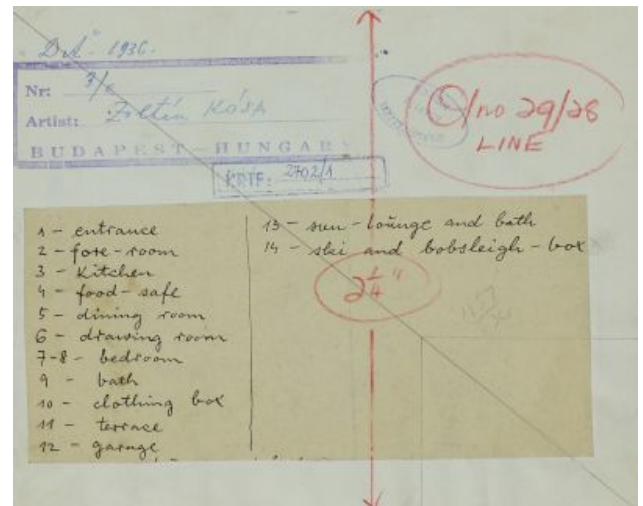 1936.
Nr: 3/c
Artist: Zoltán KÓSA
BUDAPEST - HUNGARY
KRIF: 2702/1
S/no 29/28
LINE
1 - entrance
2 - fore-room
3 - Kitchen
4 - food-safe
5 - dining room
6 - drawing room
7-8 - bedroom
9 - bath
10 - clothing box
11 - terrace
12 - garage
13 - sun-lounge and bath
14 - ski and bobsleigh-box
2 1/4"